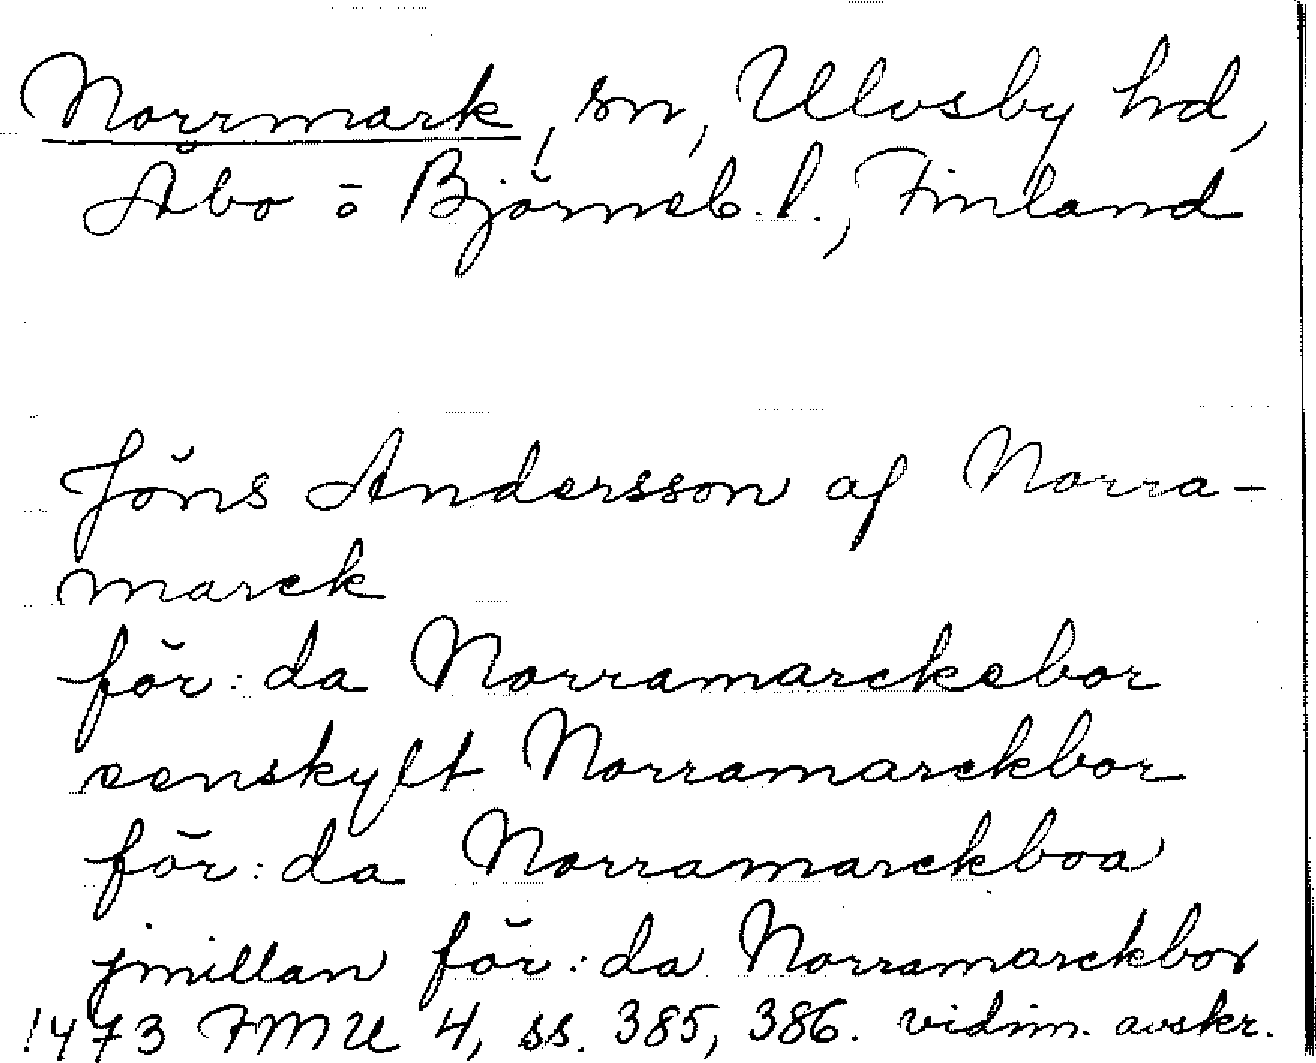 Norrmark, sn, Ulvsby hd,
Åbo o Björneb. l., Finland
Jöns Andersson af Norra-
marck
för:da Norramarckebor
eenskylt Norramarckbor
för:da Norramarckboa
jmillan för:da Norramarckbor
1473 FMU 4, ss. 385, 386. vidim. avskr.